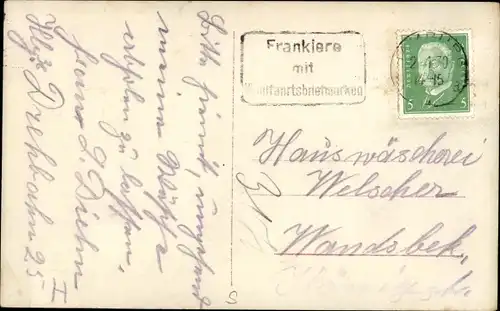 Bitte freundl. umgehend
meine Wäsche
abholen zu lassen.
Frau L. Diehn
Hbg. Drehbahn 25 I
Frankiere
mit
Wohlfahrtsbriefmarken
5 5
Hauswäscherei
Welscher
Wandsbek,